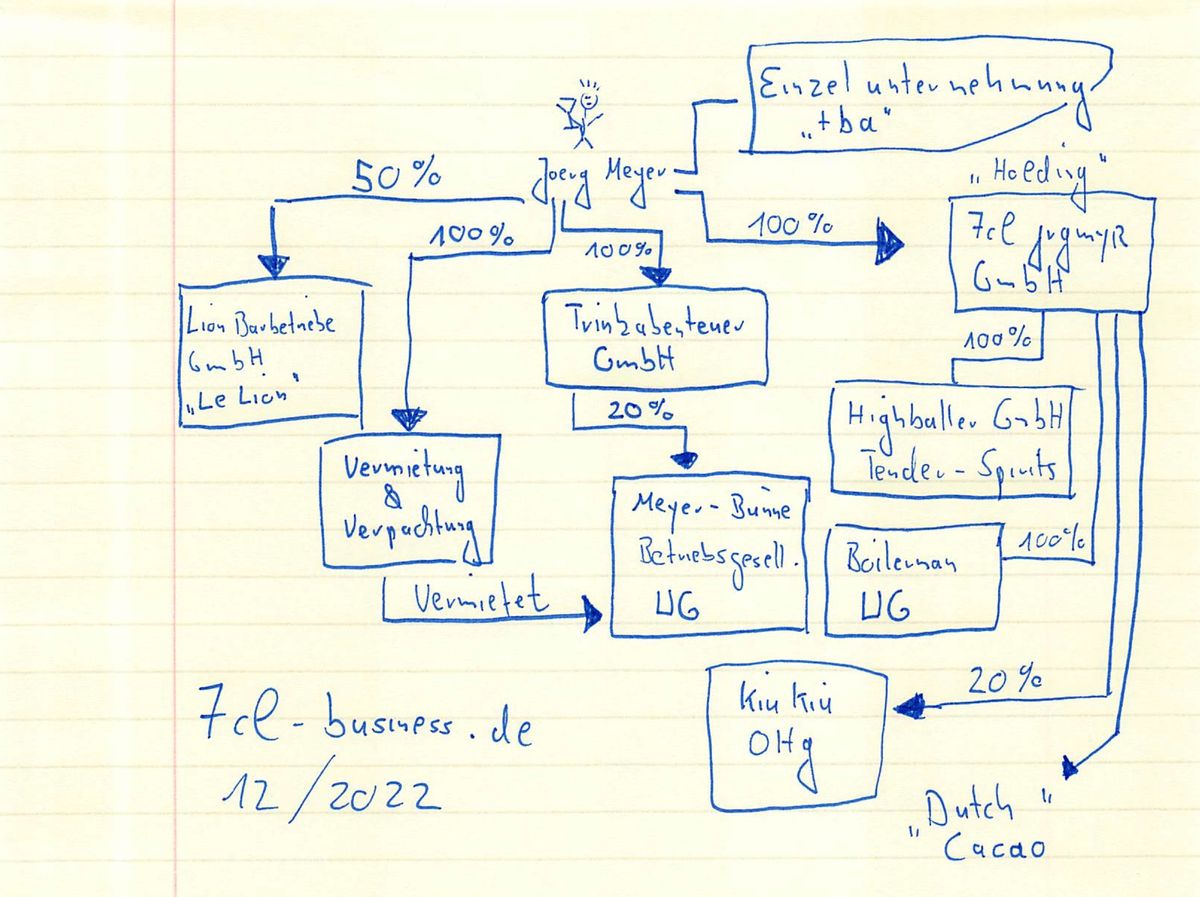 Einzelunternehmung
„tba“
Joerg Meyer
„Holding“
50%
100%
100%
100%
7cl jrgmyR
GmbH
Lion Barbetriebe
GmbH
„Le Lion“
Trinkabenteuer
GmbH
100%
20%
Highballer GmbH
Tender-Spirits
Vermietung
&
Verpachtung
Meyer-Bünne
Betriebsgesell.
UG
Boilerman
UG
100%
Vermietet
20%
Kiu Kiu
OHg
7cl-business.de
12/2022
„Dutch“
Cacao